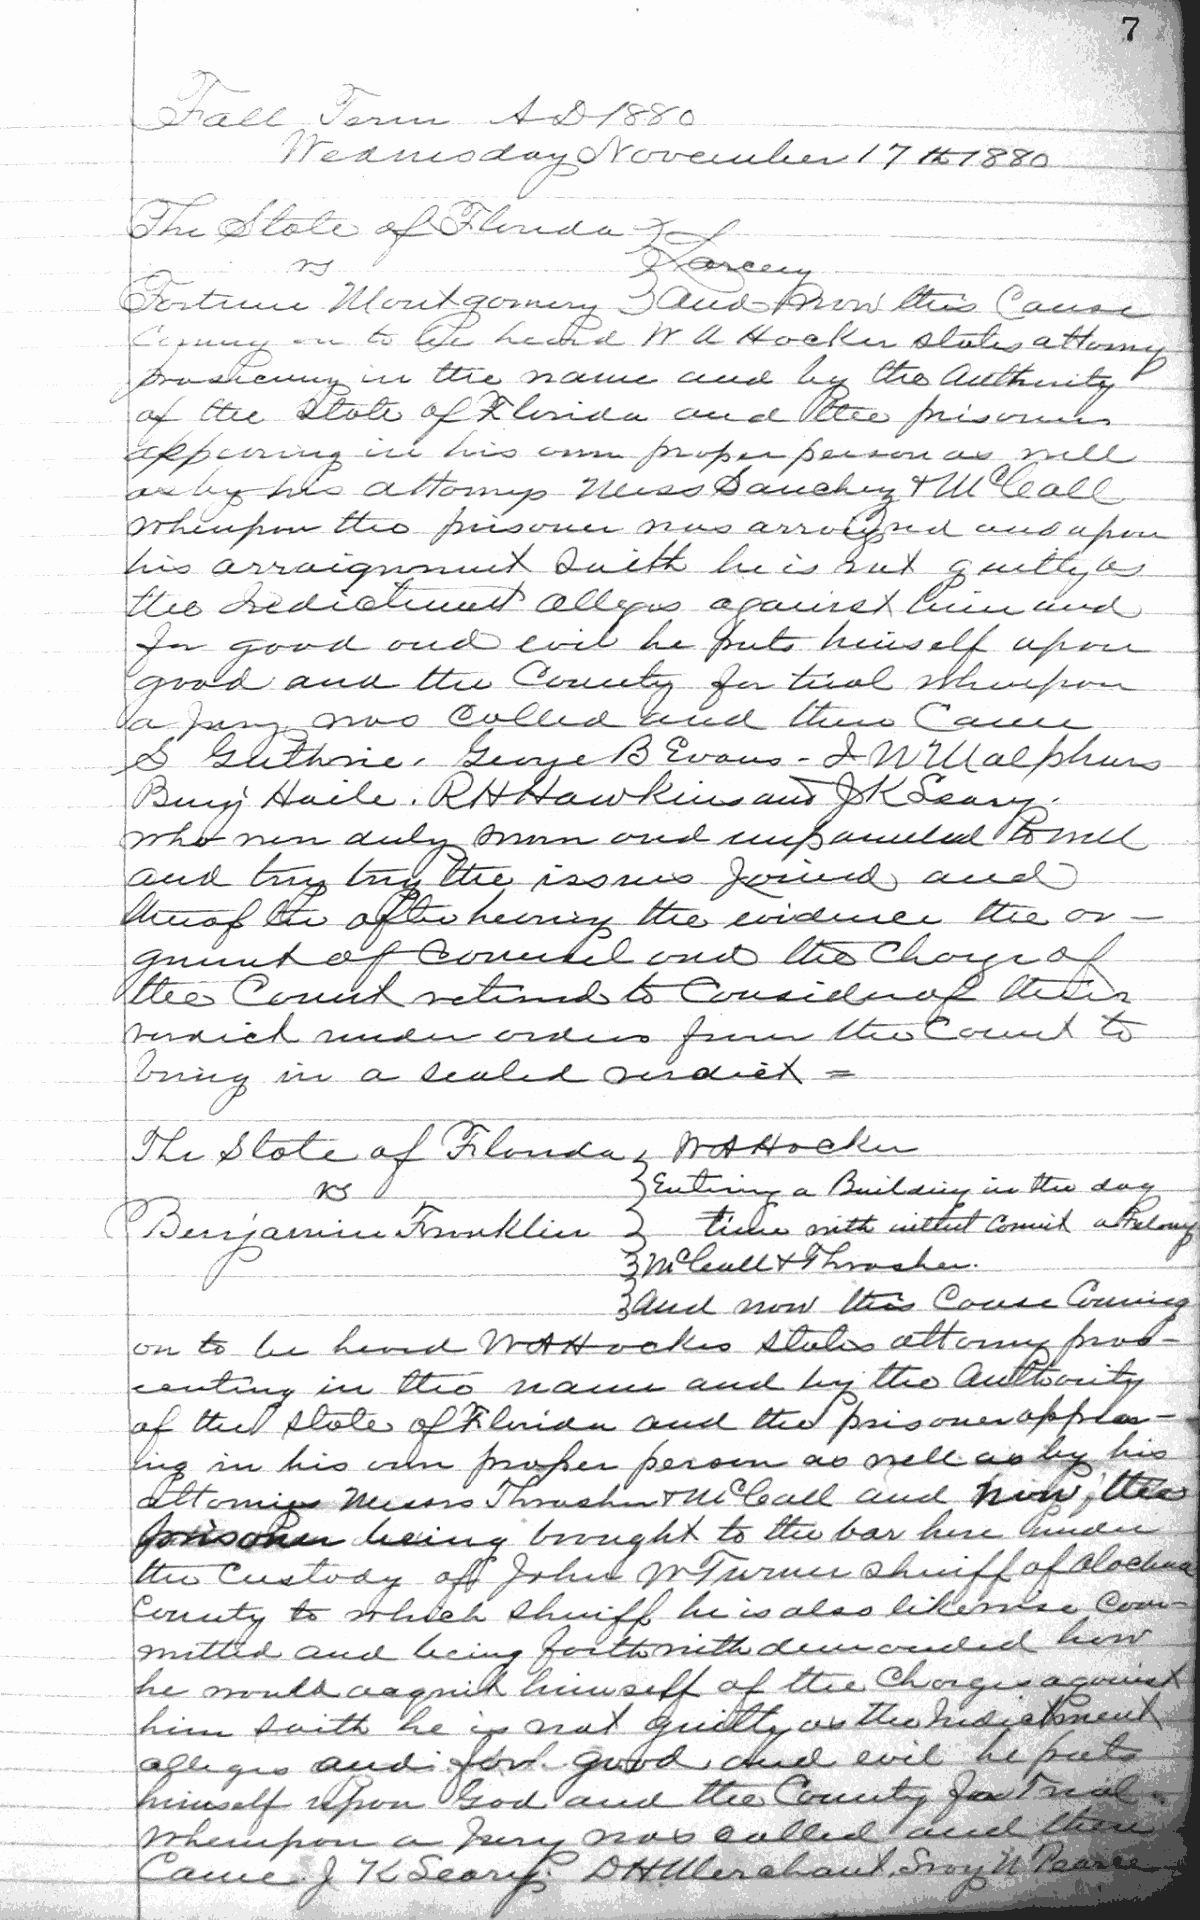 7
Fall Term A D 1880
Wednesday November 17th 1880
The State of Florida
vs Larceny
Fortune Montgomery And now this Cause
Coming on to be heard W A Hocker states attorney
prosecuting in the name and by the Authority
of the State of Florida and the prisoner
appearing in his own proper person as well
as by his attorneys Mess Sanchez & McCall
whereupon the prisoner was arraigned and upon
his arraignment Saith he is not guilty as
the Indictment alleges against him and
for good and evil he puts himself upon
good and the County for trial whereupon
a Jury was Called and there Came
S Guthrie. George B Evans - J W Malphurs
Benj Haile. R H Hawkins and J K Seary.
who were duly sworn and impaneled to well
and try try the issues Joined and
the after hearing the evidence the ar-
gument of Counsel and the Charge of
the Court retired to Consider of their
verdict under orders from the Court to
bring in a sealed verdict =
The State of Florida W A Hocker
vs Entering a Building in the day
Benjamin Franklin time with intent Commit a Felony
McCall & Thrasher.
And now this Cause Coming
on to be heard W A Hocker states attorney pros-
ecuting in the name and by the Authority
of the State of Florida and the prisoner appear-
ing in his own proper person as well as by his
attornies Messrs Thrasher & McCall and now, the
prisoner being brought to the bar here under
the Custody of John W Turner Sheriff of Alachua
County to which Sheriff he is also likewise Com-
mitted and being forthwith demanded how
he would acquit himself of the Charges against
him saith he is not guilty as the Indictment
alleges and for good and evil he puts
himself upon God and the County for Trial.
Whereupon a Jury was called and there
Came J K Seary. D H Merchant. N Pearce